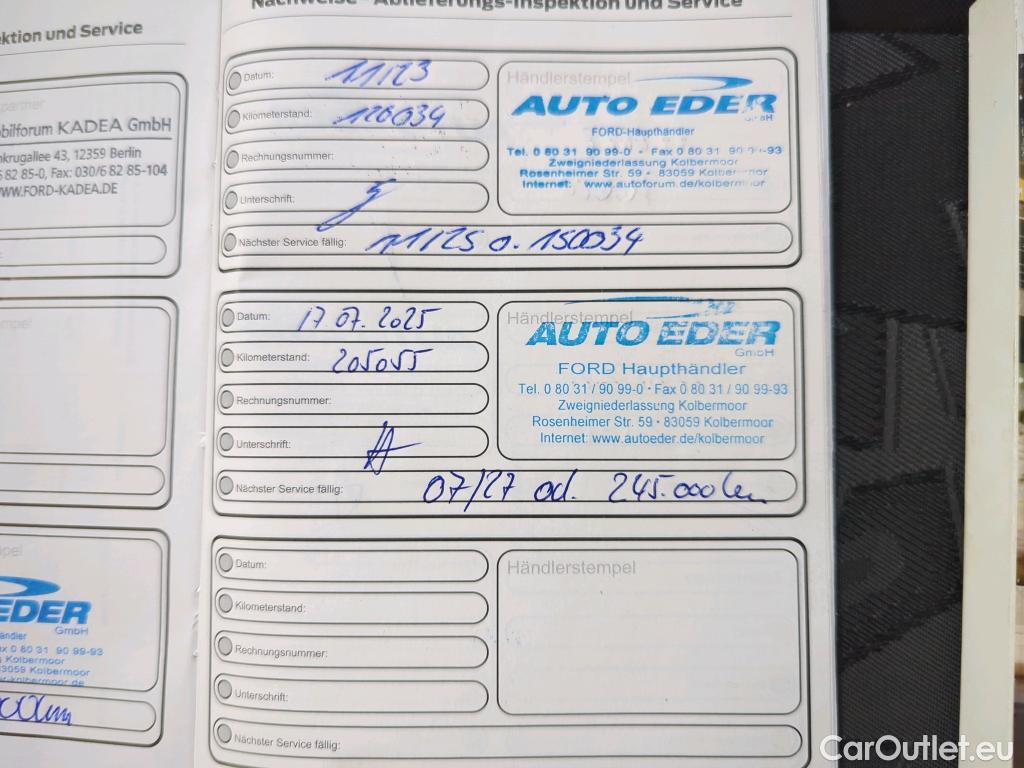 ktion und Service
Nachweise - Ablieferungs-Inspektion und Service
partner
bilforum KADEA GmbH
krugallee 43, 12359 Berlin
6 82 85-0, Fax: 030/6 82 85-104
WWW.FORD-KADEA.DE
Datum: 11/23
Kilometerstand: 120034
Rechnungsnummer:
Unterschrift:
Nächster Service fällig: 11/25 o. 150034
Händlerstempel
AUTO EDER
GmbH
FORD-Haupthändler
Tel. 0 80 31 90 99-0 - Fax 0 80 31 90 99-93
Zweigniederlassung Kolbermoor
Rosenheimer Str. 59 - 83059 Kolbermoor
Internet: www.autoforum.de/kolbermoor
Datum: 17.07.2025
Kilometerstand: 205055
Rechnungsnummer:
Unterschrift:
Nächster Service fällig: 07/27 od. 245.000 km
Händlerstempel
AUTO EDER
GmbH
FORD Haupthändler
Tel. 0 80 31 / 90 99-0 · Fax 0 80 31 / 90 99-93
Zweigniederlassung Kolbermoor
Rosenheimer Str. 59 · 83059 Kolbermoor
Internet: www.autoeder.de/kolbermoor
EDER
GmbH
ändler
ax 0 80 31 90 99-93
g Kolbermoor
83059 Kolbermoor
Datum:
Kilometerstand:
Rechnungsnummer:
Unterschrift:
Nächster Service fällig:
Händlerstempel
CarOutlet.eu